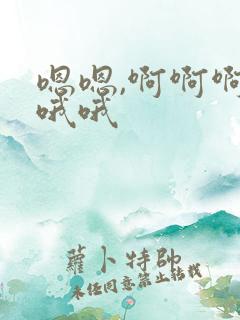 嗯嗯,啊啊啊
哦哦
蘿卜特帥
未经同意禁止转载